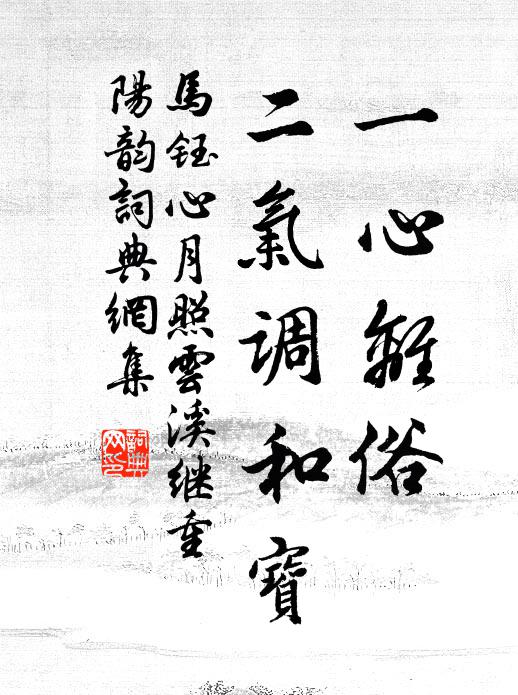 一心離俗
二氣调和寶
馬鈺心月照雲溪继重
陽韵詞典網集
詞典
网印